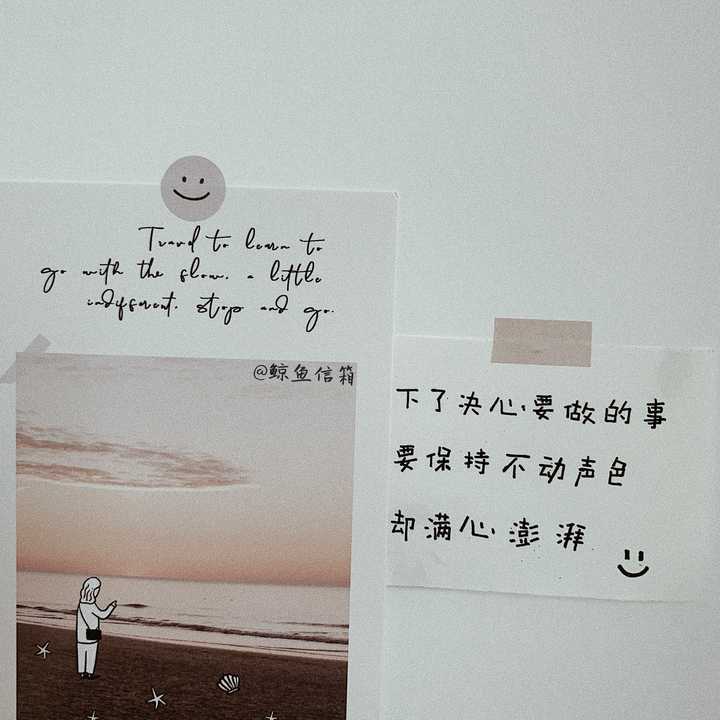 Travel to learn to
go with the slow. a little
indifferent. stop and go.
@鲸鱼信箱
下了决心要做的事
要保持不动声色
却满心澎湃